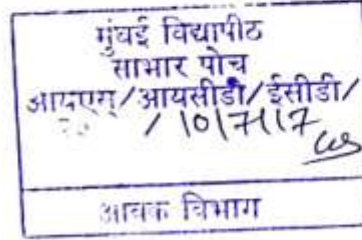 मुंबई विद्यापीठ
साभार पोच
आयएम/आयसीडी/ईसीडी/
/ 10/7/17
आवक विभाग